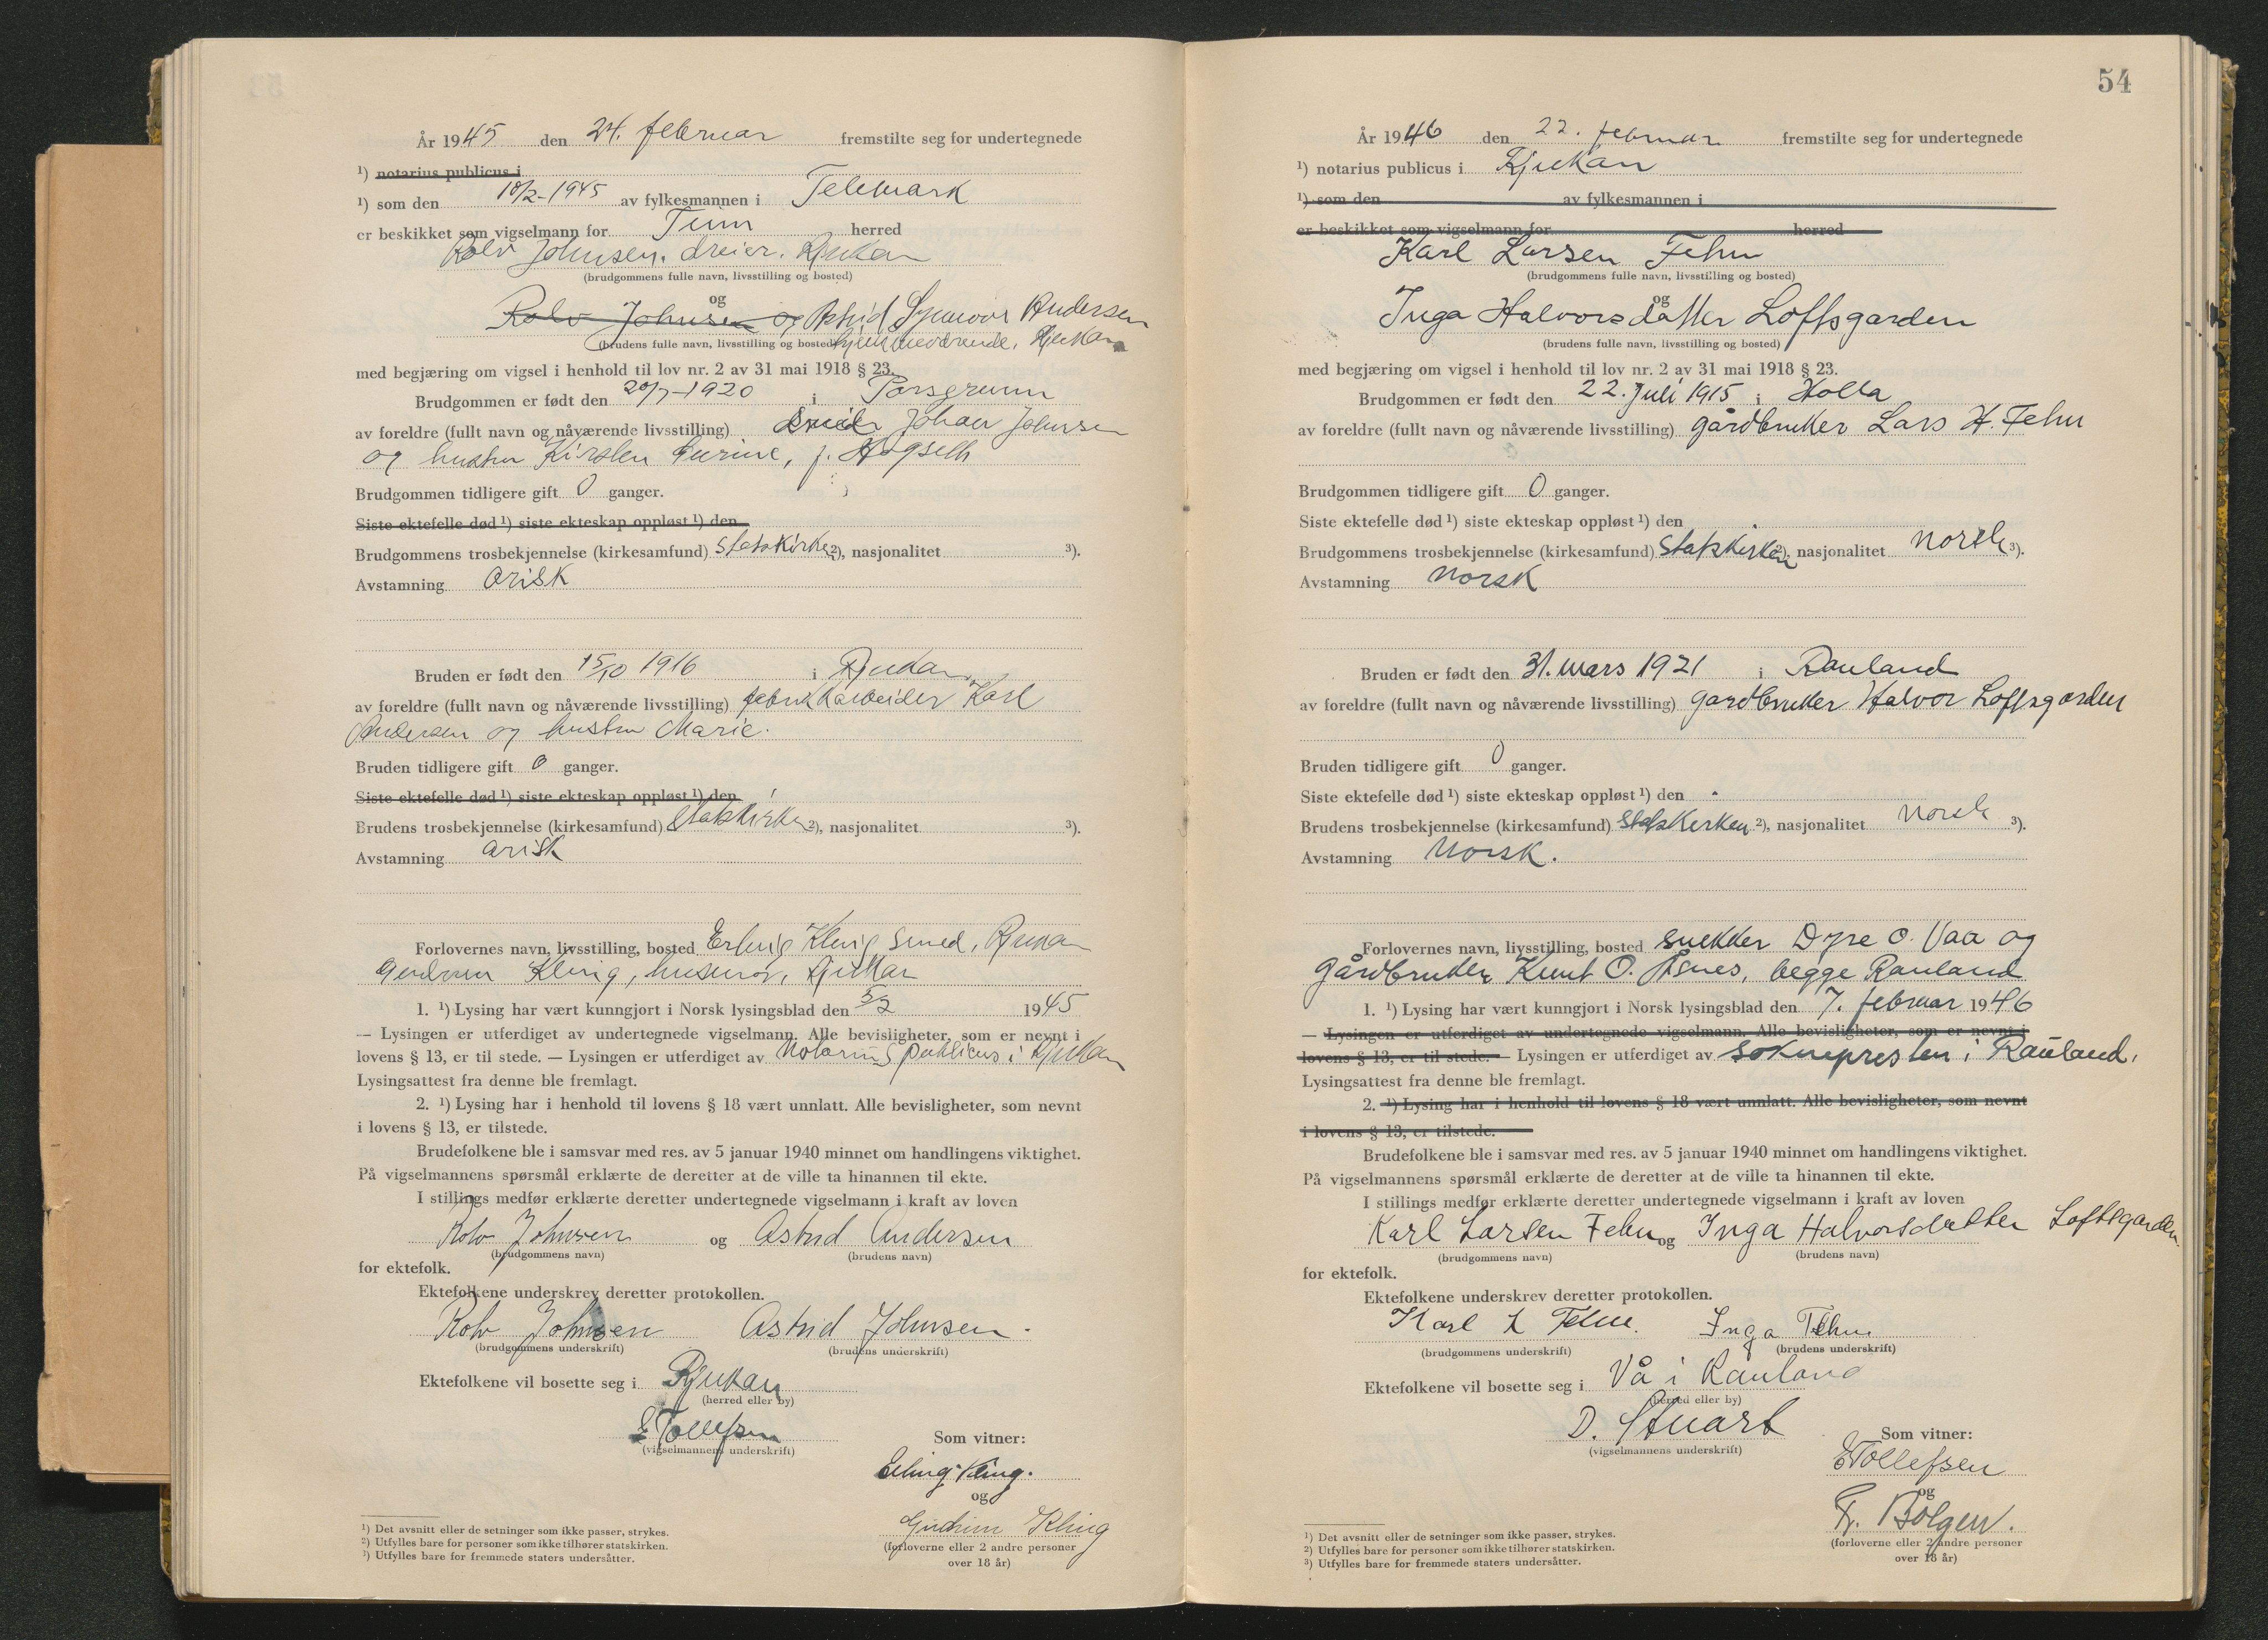 År 1945 den 24. februar fremstilte seg for undertegnede
¹) notarius publicus i
¹) som den 10/2-1945 av fylkesmannen i Telemark
er beskikket som vigselmann for Tinn herred
Rolv Johnsen. dreier. Rjukan
(brudgommens fulle navn, livsstilling og bosted)
og
Rolv Johnsen og Astrid Synnøve Andersen
(brudens fulle navn, livsstilling og bosted) hjemmeværende, Rjukan
med begjæring om vigsel i henhold til lov nr. 2 av 31 mai 1918 § 23.
Brudgommen er født den 20/7-1920 i Porsgrunn
av foreldre (fullt navn og nåværende livsstilling) Johan Johnsen
og hustru Kirsten f. Høgseth
Brudgommen tidligere gift 0 ganger.
Siste ektefelle død ¹) siste ekteskap oppløst ¹) den
Brudgommens trosbekjennelse (kirkesamfund) statskirken ²), nasjonalitet ³).
Avstamning arisk
Bruden er født den 15/10 1916 i Rjukan
av foreldre (fullt navn og nåværende livsstilling) fabrikkarbeider Karl
Andersen og hustru Marie.
Bruden tidligere gift 0 ganger.
Siste ektefelle død ¹) siste ekteskap oppløst ¹) den
Brudens trosbekjennelse (kirkesamfund) statskirken ²), nasjonalitet ³).
Avstamning arisk
Forlovernes navn, livsstilling, bosted Erling Kling smed, Rjukan
Gudrun Kling, husmor, Rjukan
1. ¹) Lysing har vært kunngjort i Norsk lysingsblad den 5/2 1945
— Lysingen er utferdiget av undertegnede vigselmann. Alle bevisligheter, som er nevnt i
lovens § 13, er til stede. — Lysingen er utferdiget av notarius publicus i Rjukan
Lysingsattest fra denne ble fremlagt.
2. ¹) Lysing har i henhold til lovens § 18 vært unnlatt. Alle bevisligheter, som nevnt
i lovens § 13, er tilstede.
Brudefolkene ble i samsvar med res. av 5 januar 1940 minnet om handlingens viktighet.
På vigselmannens spørsmål erklærte de deretter at de ville ta hinannen til ekte.
I stillings medfør erklærte deretter undertegnede vigselmann i kraft av loven
Rolv Johnsen og Astrid Andersen
(brudgommens navn) (brudens navn)
for ektefolk.
Ektefolkene underskrev deretter protokollen.
Rolv Johnsen Astrid Johnsen.
(brudgommens underskrift) (brudens underskrift)
Ektefolkene vil bosette seg i Rjukan
(herred eller by)
E Tollefsen
(vigselmannens underskrift)
Som vitner:
Erling Kling.
og
Gudrun Kling
(forloverne eller 2 andre personer
over 18 år)
¹) Det avsnitt eller de setninger som ikke passer, strykes.
²) Utfylles bare for personer som ikke tilhører statskirken.
³) Utfylles bare for fremmede staters undersåtter.
54
År 1946 den 22. februar fremstilte seg for undertegnede
¹) notarius publicus i Rjukan
¹) som den av fylkesmannen i
er beskikket som vigselmann for herred
Karl Larsen Fehn
(brudgommens fulle navn, livsstilling og bosted)
og
Inga Halvorsdatter Loftsgarden
(brudens fulle navn, livsstilling og bosted)
med begjæring om vigsel i henhold til lov nr. 2 av 31 mai 1918 § 23.
Brudgommen er født den 22. juli 1915 i Holla
av foreldre (fullt navn og nåværende livsstilling) gårdbruker Lars H. Fehn
Brudgommen tidligere gift 0 ganger.
Siste ektefelle død ¹) siste ekteskap oppløst ¹) den
Brudgommens trosbekjennelse (kirkesamfund) Statskirken ²), nasjonalitet norsk ³).
Avstamning norsk
Bruden er født den 31. mars 1921 i Rauland
av foreldre (fullt navn og nåværende livsstilling) gardbruker Halvor Loftsgarden
Bruden tidligere gift 0 ganger.
Siste ektefelle død ¹) siste ekteskap oppløst ¹) den
Brudens trosbekjennelse (kirkesamfund) Statskirken ²), nasjonalitet norsk ³).
Avstamning Norsk.
Forlovernes navn, livsstilling, bosted snekker Dyre O. Vaa og
gårdbruker Knut O. Åsnes, begge Rauland
1. ¹) Lysing har vært kunngjort i Norsk lysingsblad den 7. februar 1946
— Lysingen er utferdiget av undertegnede vigselmann. Alle bevisligheter, som er nevnt i
lovens § 13, er til stede. — Lysingen er utferdiget av soknepresten i Rauland,
Lysingsattest fra denne ble fremlagt.
2. ¹) Lysing har i henhold til lovens § 18 vært unnlatt. Alle bevisligheter, som nevnt
i lovens § 13, er tilstede.
Brudefolkene ble i samsvar med res. av 5 januar 1940 minnet om handlingens viktighet.
På vigselmannens spørsmål erklærte de deretter at de ville ta hinannen til ekte.
I stillings medfør erklærte deretter undertegnede vigselmann i kraft av loven
Karl Larsen Fehn og Inga Halvorsdatter Loftsgarden
(brudgommens navn) (brudens navn)
for ektefolk.
Ektefolkene underskrev deretter protokollen.
Karl L Fehn. Inga Fehn
(brudgommens underskrift) (brudens underskrift)
Ektefolkene vil bosette seg i Vå i Rauland
(herred eller by)
D. Stuart
(vigselmannens underskrift)
Som vitner:
E Tollefsen
og
Fr. Bølgen.
(forloverne eller 2 andre personer
over 18 år)
¹) Det avsnitt eller de setninger som ikke passer, strykes.
²) Utfylles bare for personer som ikke tilhører statskirken.
³) Utfylles bare for fremmede staters undersåtter.